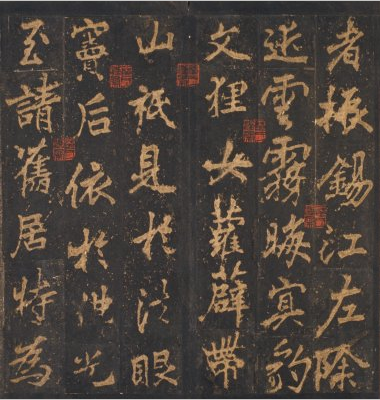 者振錫江左除
迹雲霧晦冥豹
文狸女蘿薜帶
山祇見於法眼
竇后依於佛光
至請舊居特為